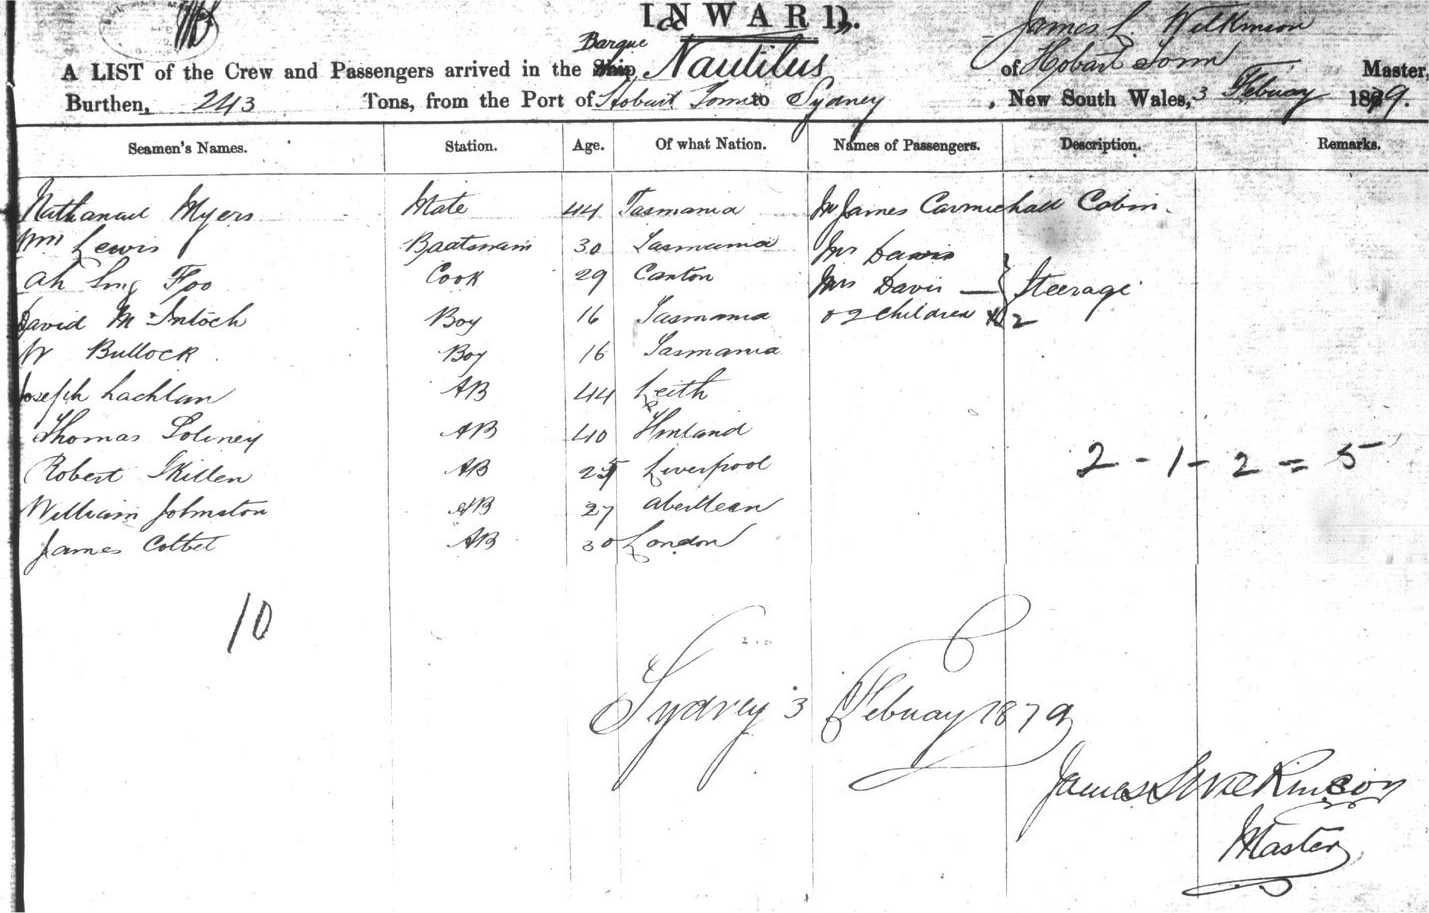 INWARD.
James L Wilkinson
Barque
A LIST of the Crew and Passengers arrived in the Ship Nautilus of Hobart Town Master,
Burthen, 243 Tons, from the Port of Hobart Town to Sydney, New South Wales, 3 Febuay 1879.
Seamen's Names. Station. Age. Of what Nation. Names of Passengers. Description. Remarks.
Nathanael Myers Mate 44 Tasmania Mr James Carmichall Cabin.
Wm Lewis Boatswain 30 Tasmania Mr Davis
Ah Sing Foo Cook 29 Canton Mrs Davis — Steerage
David McIntoch Boy 16 Tasmania 2 Children 2
W Bullock Boy 16 Tasmania
Joseph Lachlan AB 44 Leith
Thomas AB 40 Finland
Robert Skillen AB 25 Liverpool
William Johnston AB 27 Aberdean
James Colbet AB 30 London
2 - 1 - 2 = 5
10
Sydney 3 Febuay 1879
James L Wilkinson
Master